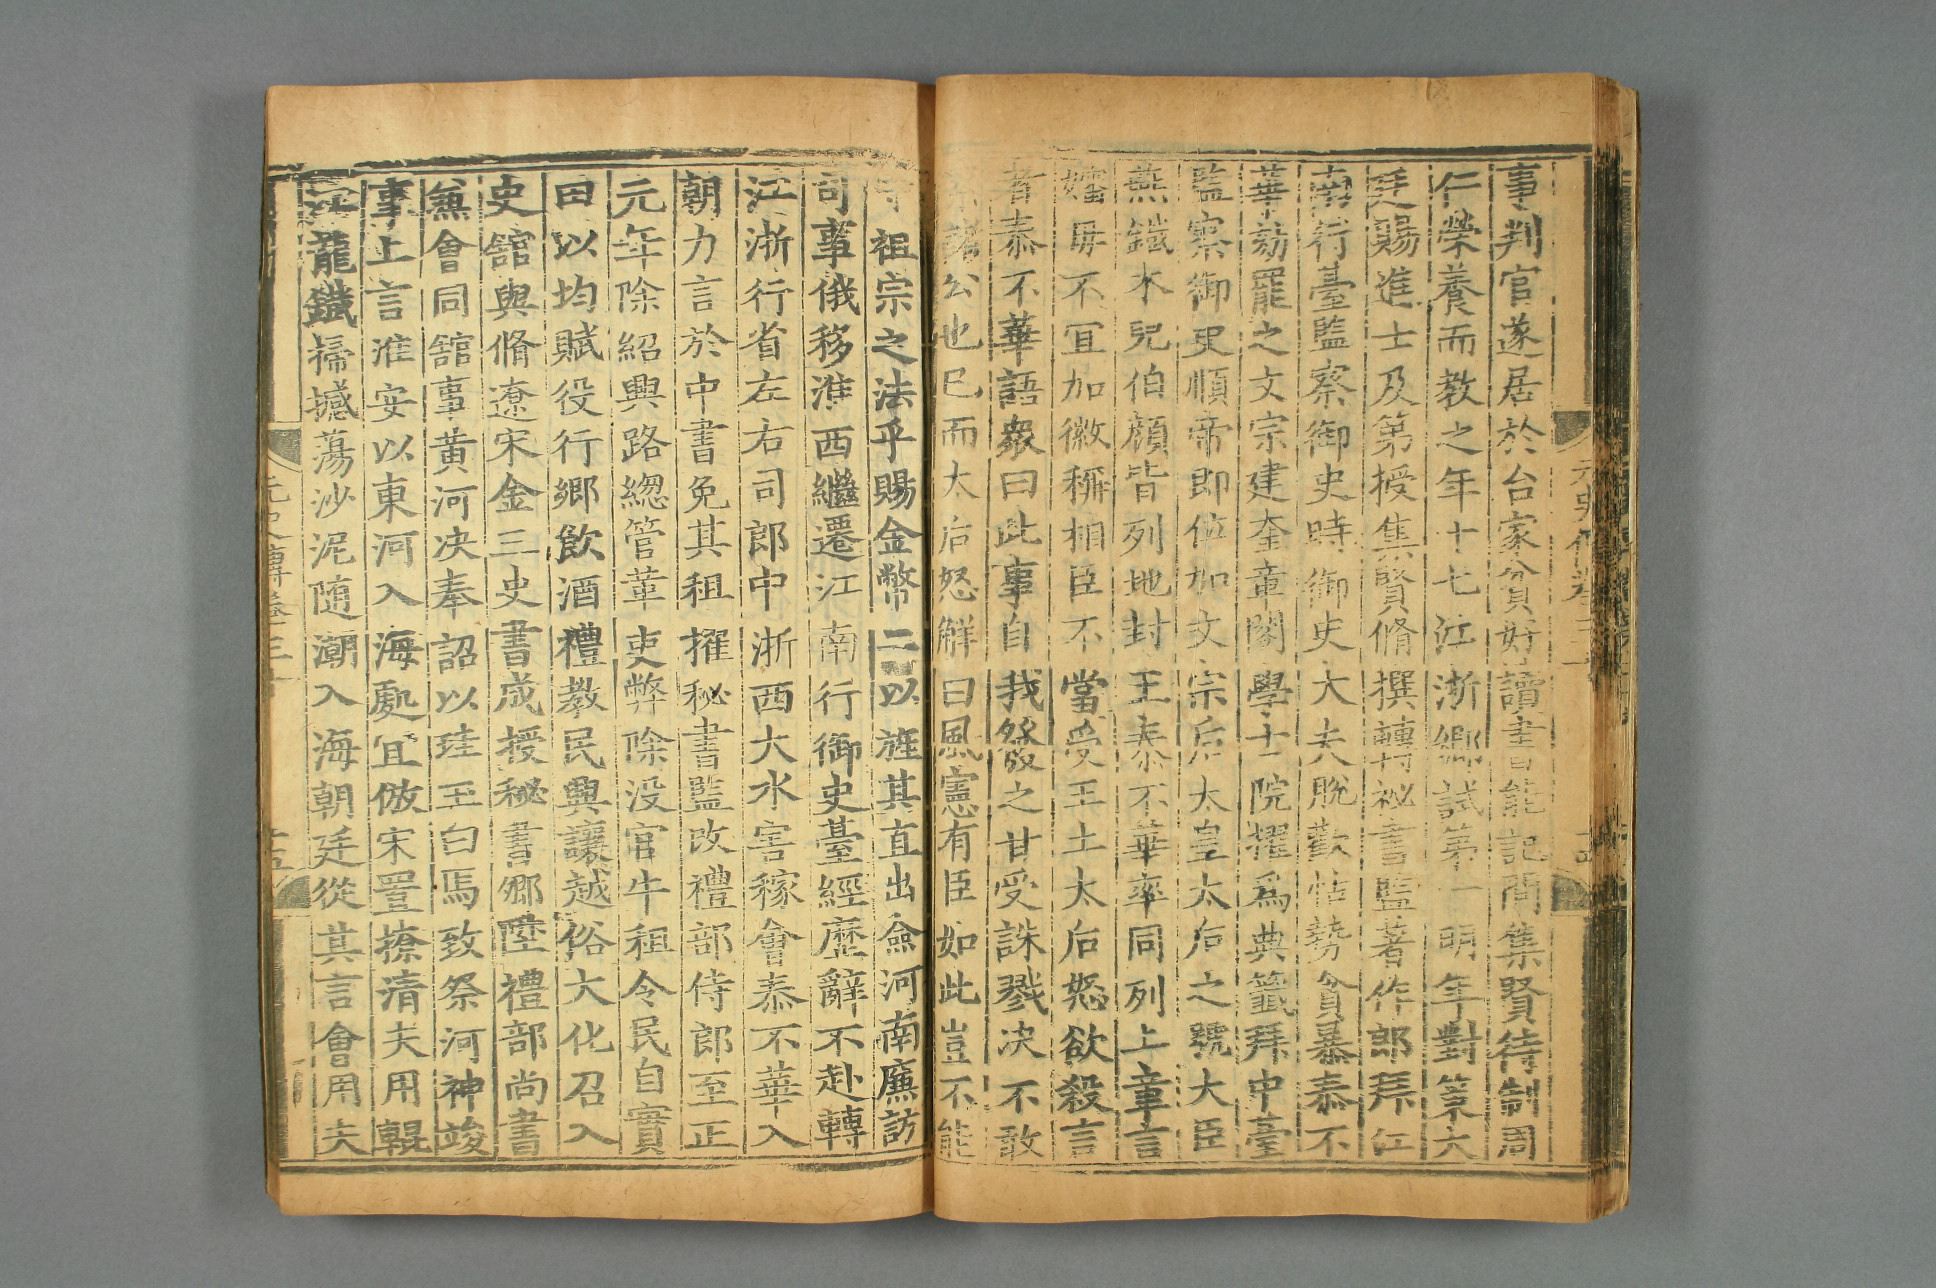 事判官遂居於台家貧好讀書能記問集賢待制周
仁榮養而教之年十七江浙鄉試第一明年對策大
廷賜進士及第授集賢脩撰轉秘書監著作郎拜江
南行臺監察御史時御史大夫脫歡怙勢貪暴泰不
華劾罷之文宗建奎章閣學士院擢爲典籤拜中臺
監察御史順帝即位加文宗后太皇太后之號大臣
燕鐵木兒伯顔皆列地封王泰不華率同列上章言
嬸母不宜加徽稱相臣不當受王土太后怒欲殺言
者泰不華語衆曰此事自我發之甘受誅戮决不敢
累諸公也已而太后怒解曰風憲有臣如此豈不能
守祖宗之法乎賜金幣二以旌其直出僉河南廉訪
司事俄移淮西繼遷江南行御史臺經歷辭不赴轉
江浙行省左右司郎中浙西大水害稼會泰不華入
朝力言於中書免其租擢秘書監改禮部侍郎至正
元年除紹興路緫管革吏弊除没官牛租令民自實
田以均賦役行鄉飲酒禮教民興讓越俗大化召入
史舘與脩遼宋金三史書成授秘書卿陞禮部尚書
兼會同舘事黄河决奉詔以珪玉白馬致祭河神竣
事上言淮安以東河入海處宜倣宋置撩清夫用輥
江龍鐵掃撼蕩沙泥隨潮入海朝廷從其言會用夫
元史傳卷三十
十五